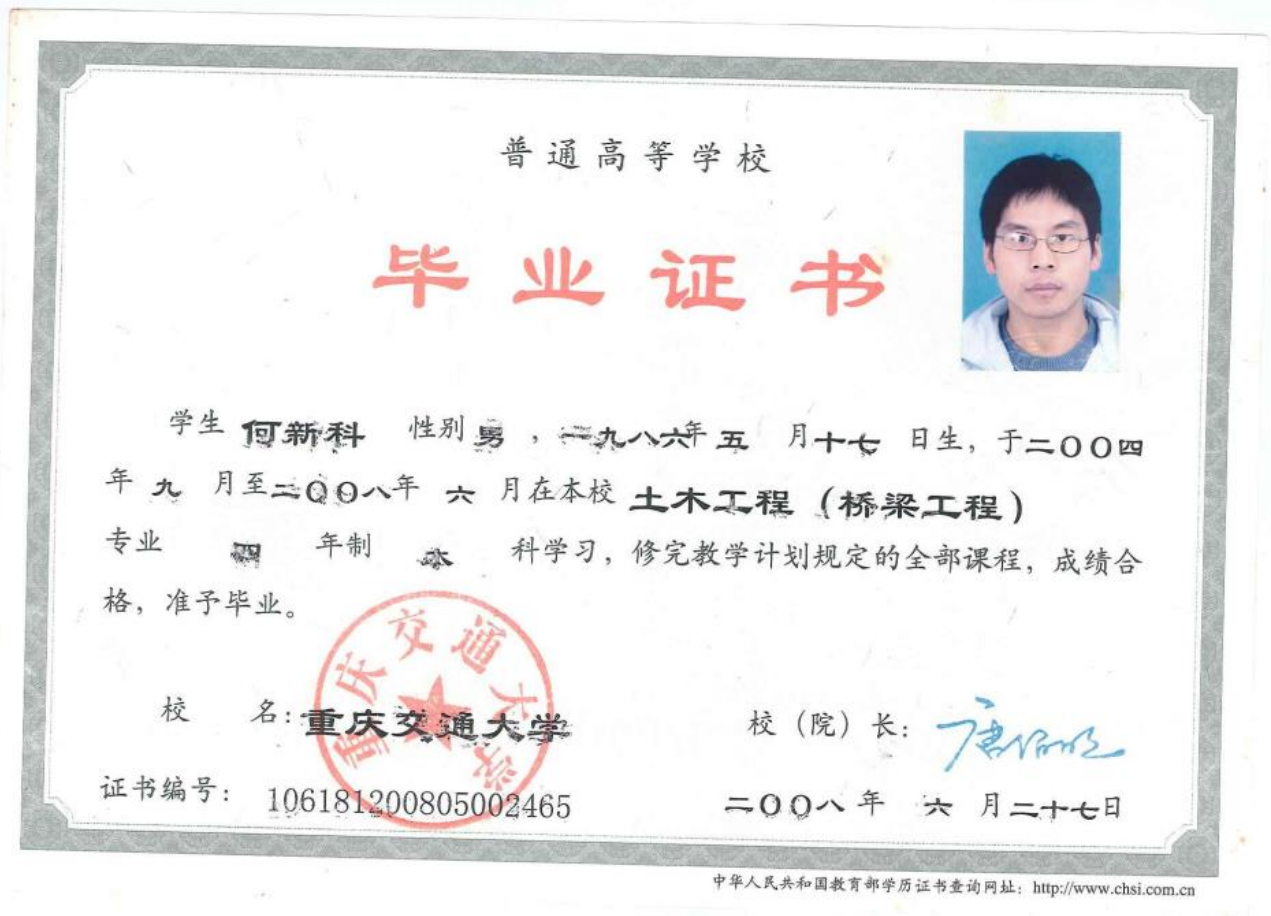 普通高等学校
毕业证书
学生 何新科 性别 男 ，一九八六年 五 月十七 日生，于二〇〇四
年 九 月至二〇〇八年 六 月在本校 土木工程（桥梁工程）
专业 四 年制 本 科学习，修完教学计划规定的全部课程，成绩合
格，准予毕业。
重庆交通大学
校 名：重庆交通大学 校（院）长：
证书编号： 106181200805002465 二〇〇八 年 六 月二十七日
中华人民共和国教育部学历证书查询网址：http://www.chsi.com.cn